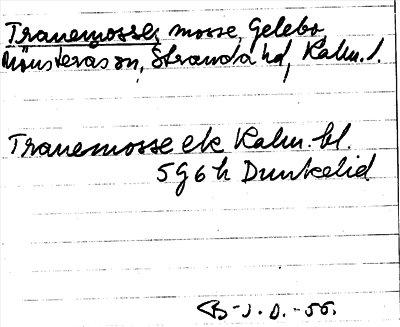 Tranemosse, mosse, Gelebo
Mönsterås sn, Stranda hd, Kalm. l.
Tranemosse ek Kalm. bl.
5 G 6 h Dunkelid
B-J. O. -56.